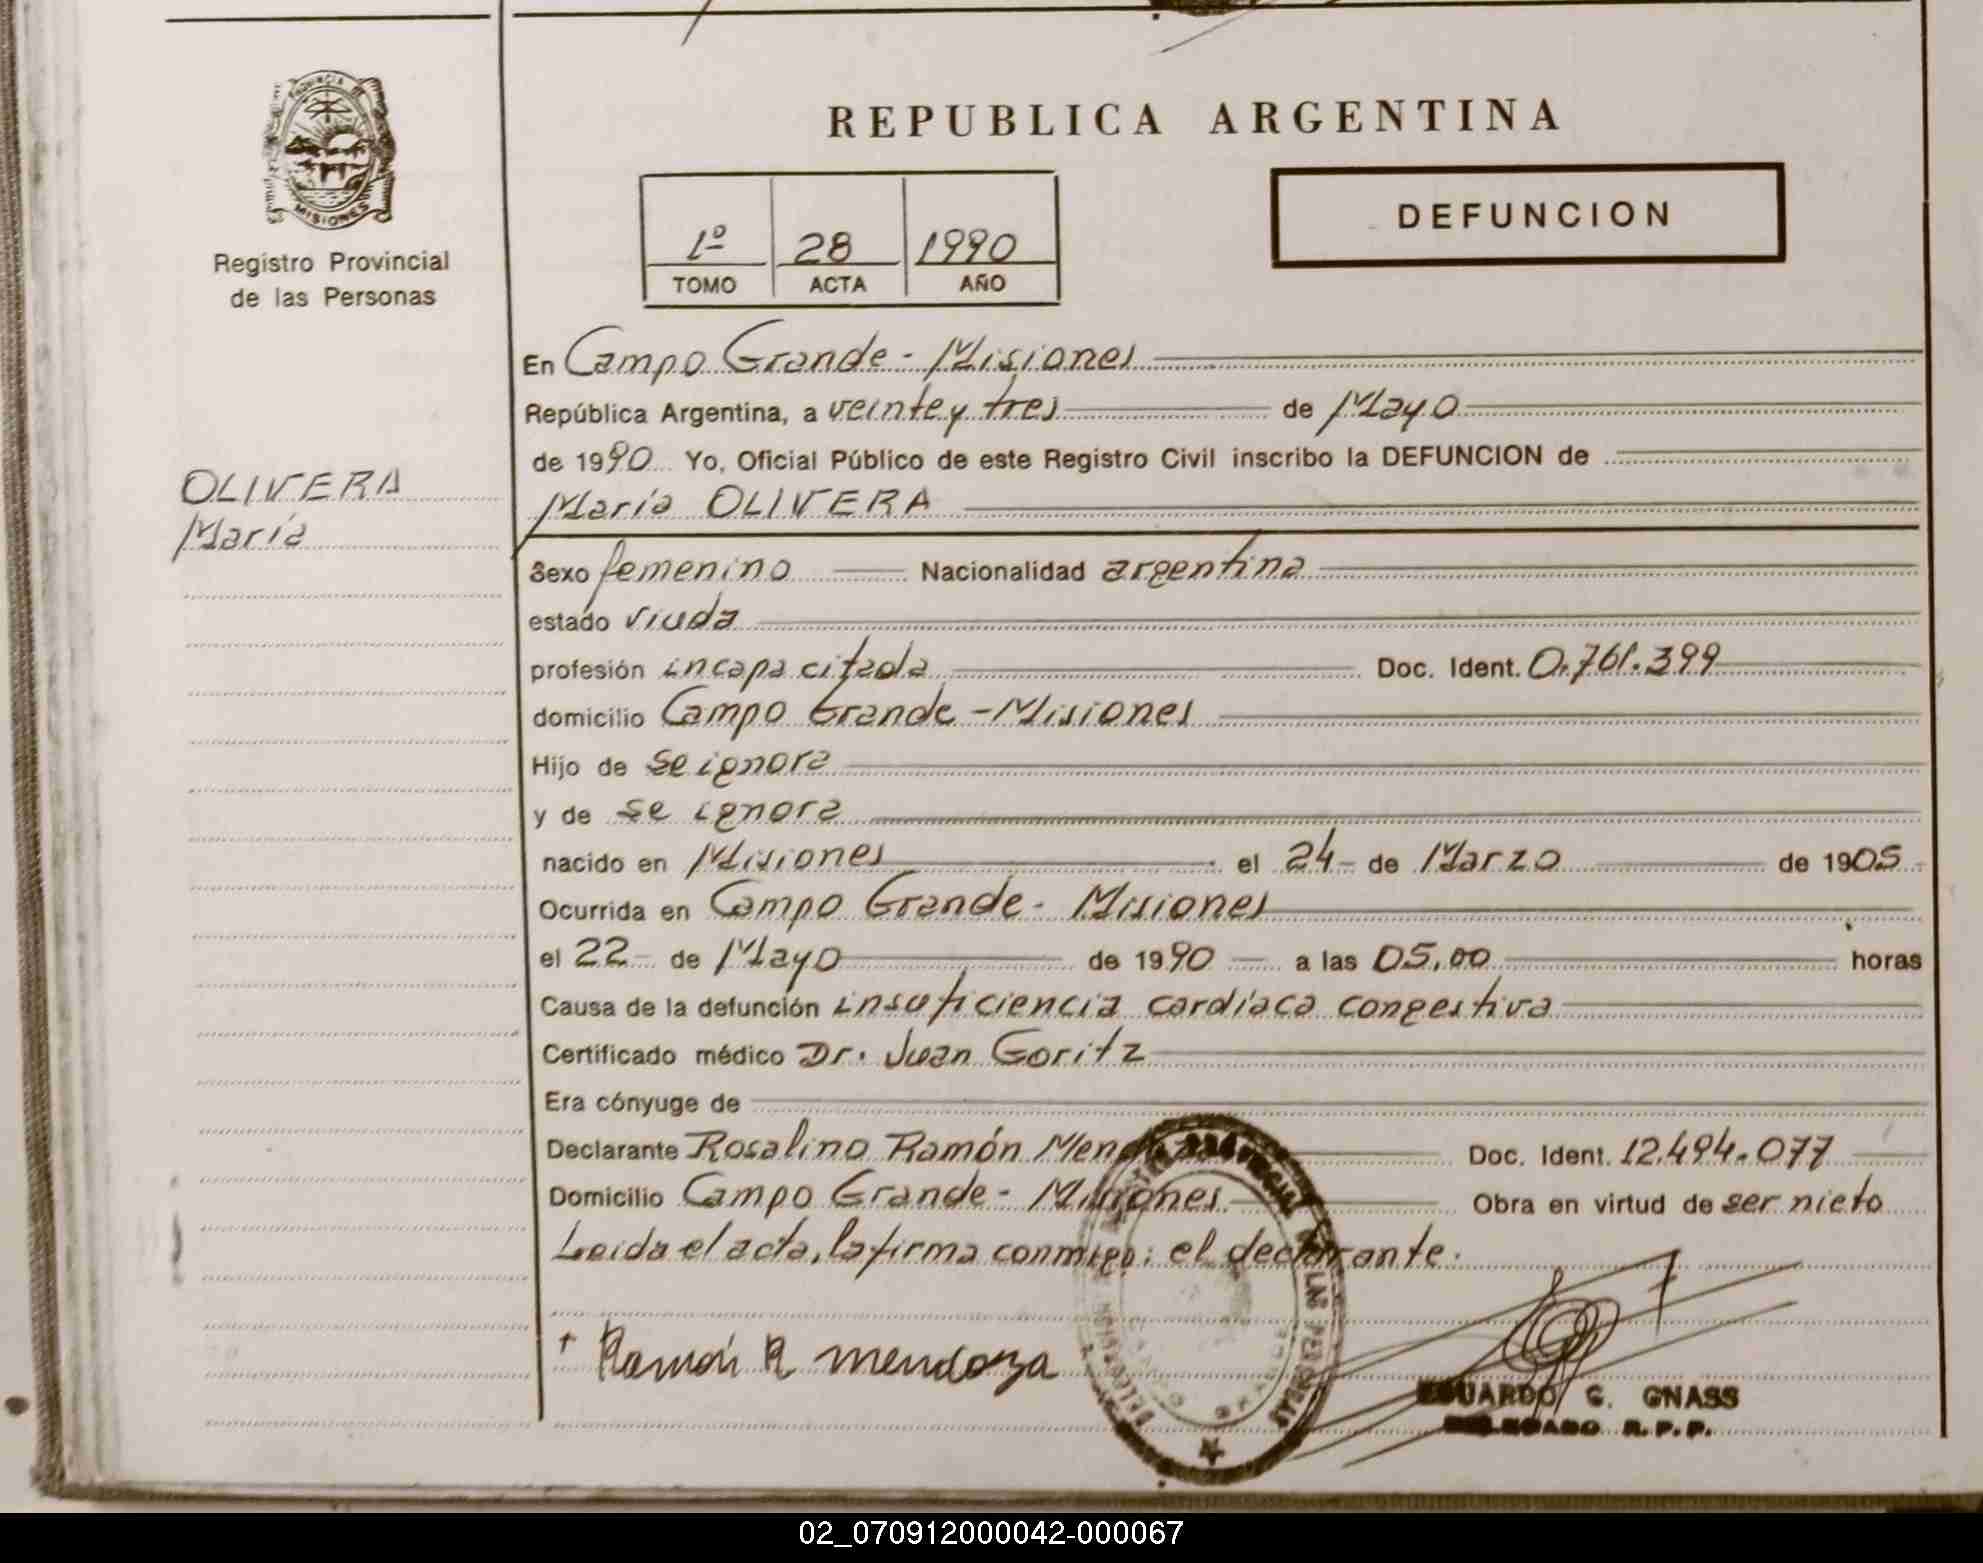 PROVINCIA DE
MISIONES
Registro Provincial
de las Personas
OLIVERA
María
REPUBLICA ARGENTINA
1º 28 1990
TOMO ACTA AÑO
DEFUNCION
En Campo Grande - Misiones
República Argentina, a veinte y tres de Mayo
de 1990 Yo, Oficial Público de este Registro Civil inscribo la DEFUNCION de
María OLIVERA
Sexo femenino Nacionalidad argentina
estado viuda
profesión incapacitada Doc. Ident. 0.761.399
domicilio Campo Grande - Misiones
Hijo de se ignora
y de se ignora
nacido en Misiones el 24 de Marzo de 1905
Ocurrida en Campo Grande - Misiones
el 22 de Mayo de 1990 a las 05,00 horas
Causa de la defunción insuficiencia cardíaca congestiva
Certificado médico Dr. Juan Goritz
Era cónyuge de
Declarante Rosalino Ramón Mendoza Doc. Ident. 12.494.077
Domicilio Campo Grande - Misiones Obra en virtud de ser nieto
Leida el acta, la firma conmigo: el declarante.
Ramón R Mendoza
LAS PERSONAS
EDUARDO G. GNASS
DELEGADO R.P.P.
02_070912000042-000067